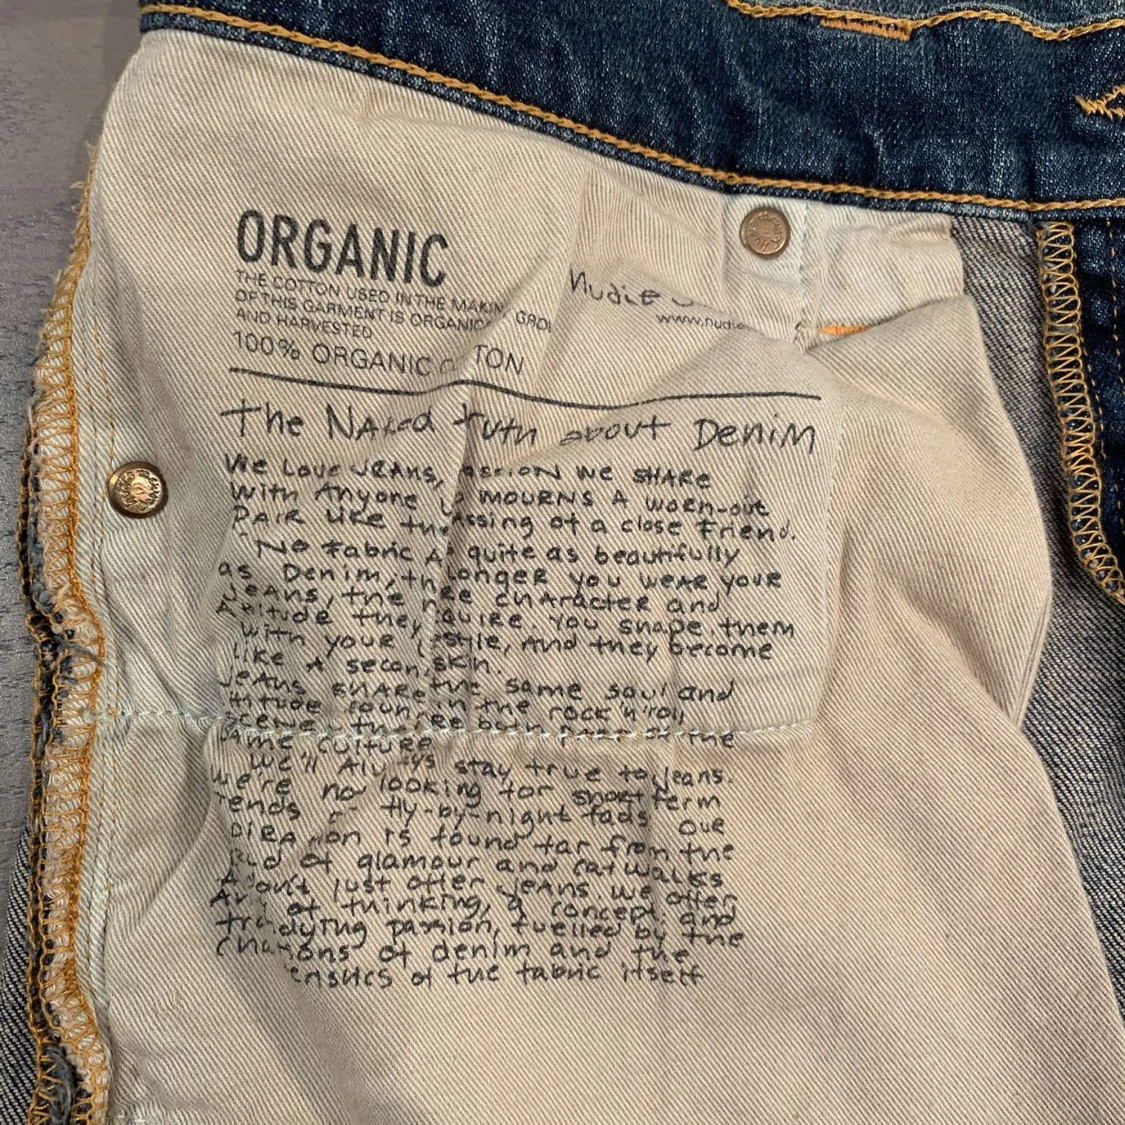 ORGANIC
THE COTTON USED IN THE MAKIN
OF THIS GARMENT IS ORGANIC GRO
AND HARVESTED
100% ORGANIC C TON
Nudie
www.nudie
The Naked truth about Denim
We Love Jeans, assion we share
with Anyone mourns a worn-out
pair like the assing of a close friend.
No fabric quite as beautifully
as Denim, th longer you wear your
jeans, the character and
they quire. You shape them
with your style, and they become
like a second skin.
Jeans share the same soul and
in the rock'n'roll
the
same culture
We'll always stay true to jeans
We're no looking for short term
ends fly-by-night fads our
on is found far from the
of glamour and catwalks
don't just offer jeans we offer
of thinking, a concept, and
dying passion, fuelled by the
ons of denim and the
of the fabric itself